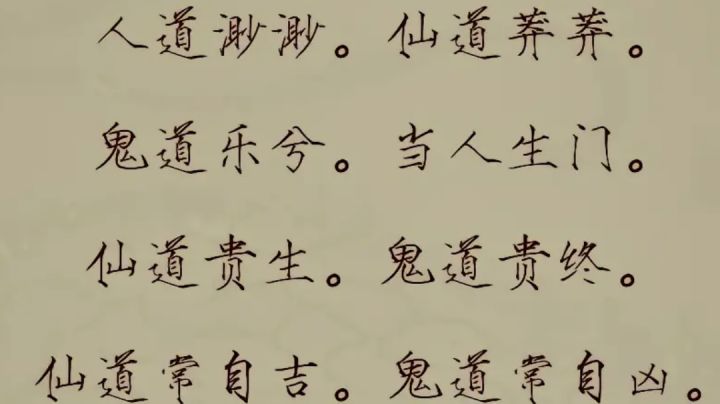 人道渺渺。仙道莽莽。
鬼道乐兮。当人生门。
仙道贵生。鬼道贵终。
仙道常自吉。鬼道常自凶。